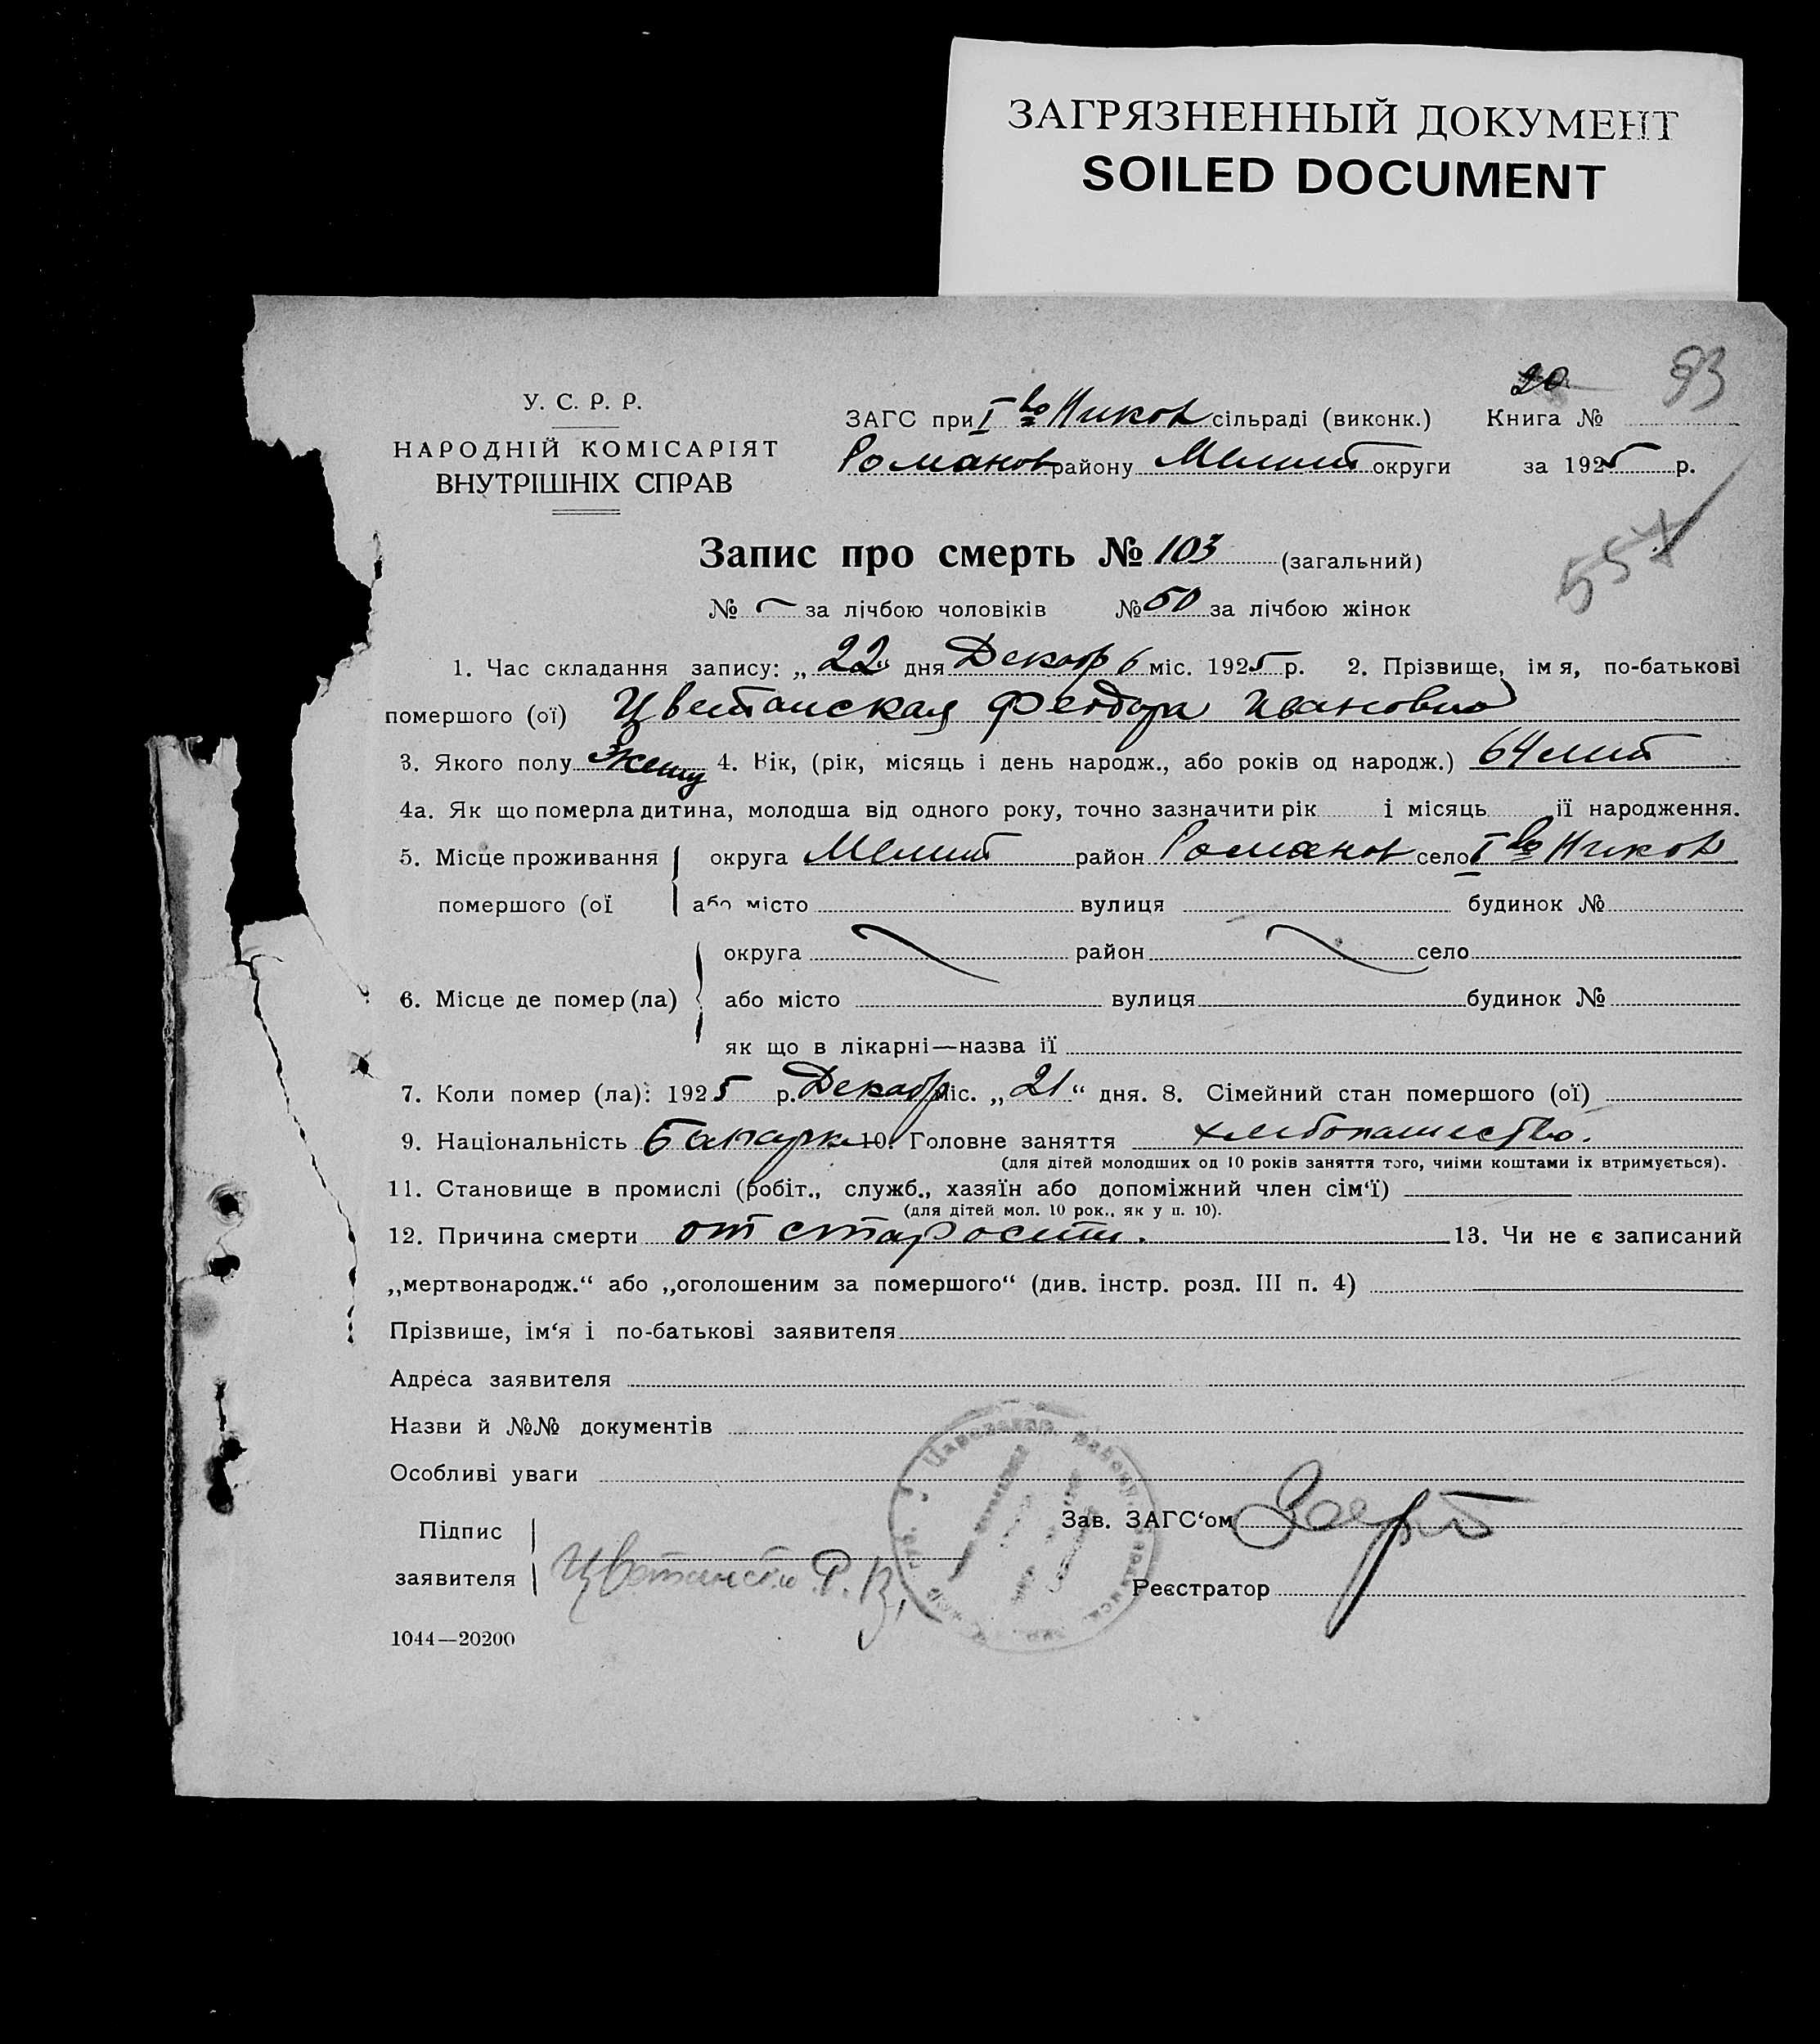 ЗАГРЯЗНЕННЫЙ ДОКУМЕНТ
SOILED DOCUMENT
20 93
У. С. Р. Р.
НАРОДНІЙ КОМІСАРІЯТ
ВНУТРІШНІХ СПРАВ
ЗАГС при І во Никол сільраді (виконк.) Книга №
Романов району Мелит округи за 1925 р.
557
Запис про смерть № 103 (загальний)
№ за лічбою чоловіків № 50 за лічбою жінок
1. Час складання запису: „22“ дня Декабр міс. 1925 р. 2. Прізвище, імя, по-батькові
помершого (ої) Цветанская Феодора Ивановна
3. Якого полу Женщ 4. Вік, (рік, місяць і день народж., або років од народж.) 64 лит
4а. Як що померла дитина, молодша від одного року, точно зазначити рік і місяць ії народження.
5. Місце проживання округа Мелит район Романов село І во Никол
помершого (ої або місто вулиця будинок №
округа район село
6. Місце де помер (ла) або місто вулиця будинок №
як що в лікарні—назва ії
7. Коли помер (ла): 1925 р. Декабр міс. „21“ дня. 8. Сімейний стан помершого (ої)
9. Національність 10. Головне заняття хлебопашество.
(для дітей молодших од 10 років заняття того, чиїми коштами їх втримується).
11. Становище в промислі (робіт., служб., хазяїн або допоміжний член сім‘ї)
(для дітей мол. 10 рок., як у п. 10).
12. Причина смерти от старости. 13. Чи не є записаний
„мертвонародж.“ або „оголошеним за помершого“ (див. інстр. розд. III п. 4)
Прізвише, ім‘я і по-батькові заявителя
Адреса заявителя
Назви й №№ документів
Особливі уваги
Підпис
заявителя
Зав. ЗАГС‘ом
Реєстратор
1044—20200